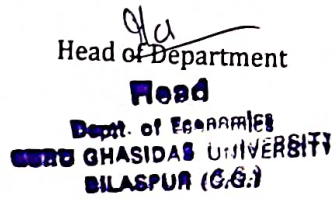 Head of Department
Head
Deptt. of Economics
GURU GHASIDAS UNIVERSITY
BILASPUR (C.G.)